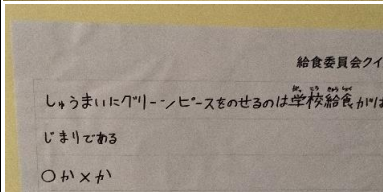 給食委員会クイ
しゅうまいにグリーンピースをのせるのは学校給食がは
じまりである
○か×か